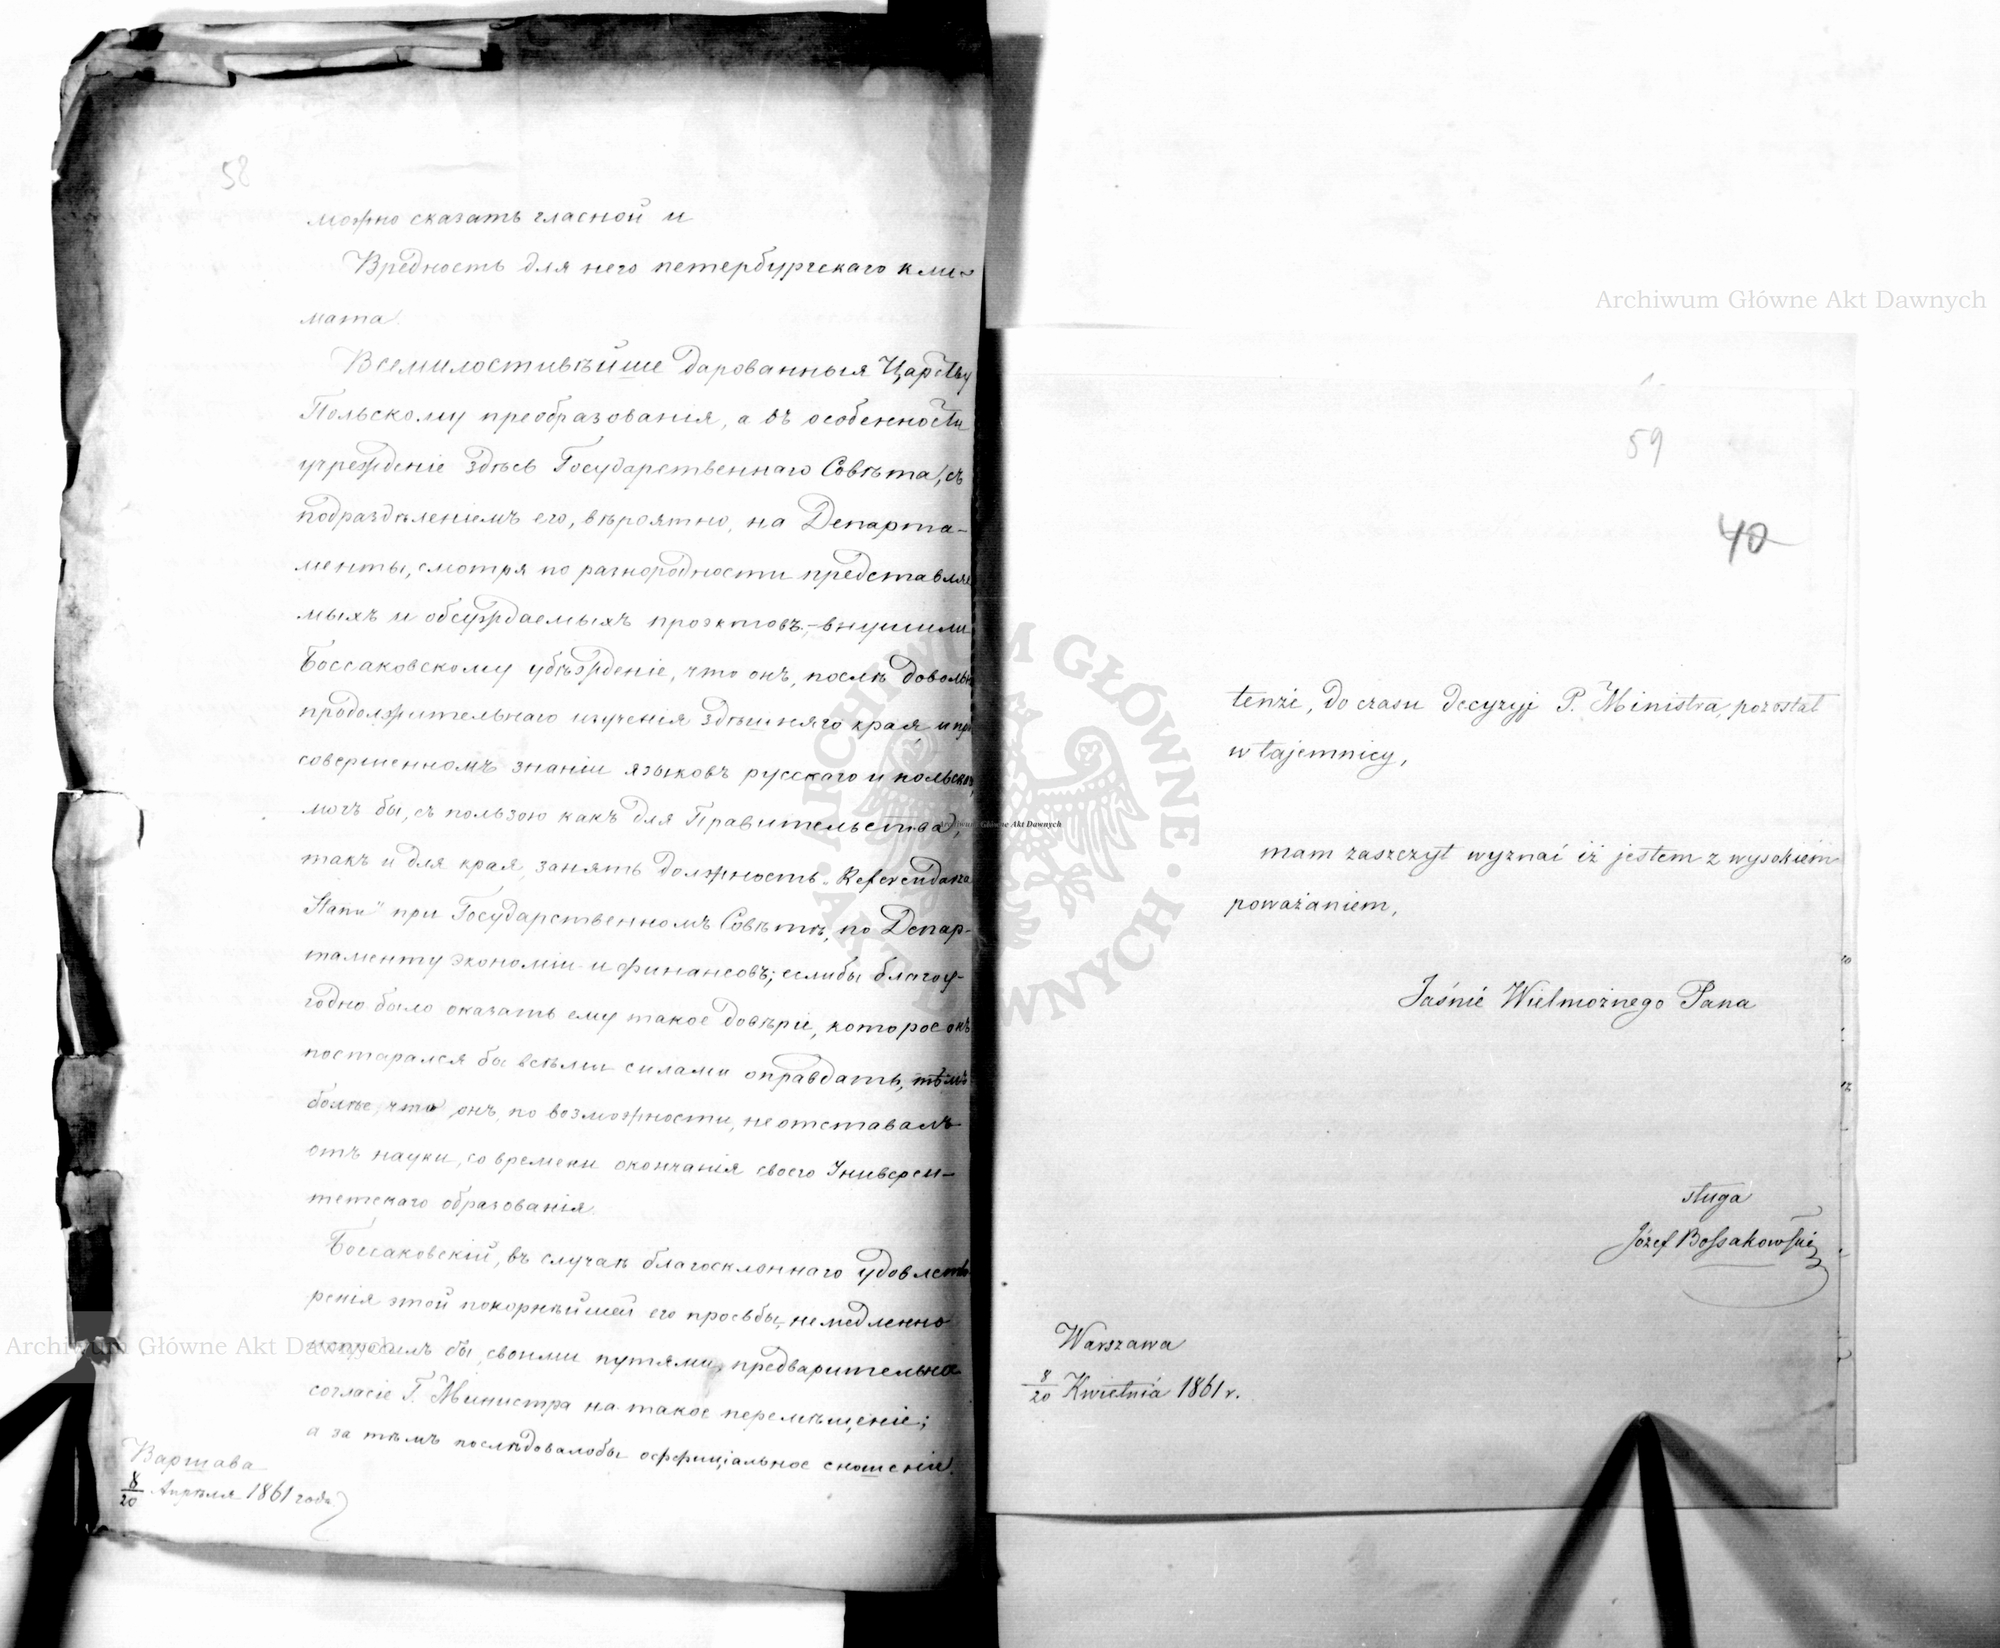 58
можно сказать гласной и
Вредность для него петербургскаго кли-
мата.
Всемилостивѣйше дарованныя Царству
Польскому преобразованія, а въ особенности
учрежденіе здѣсь Государственнаго Совѣта, съ
подраздѣленіемъ его, вѣроятно, на Департа-
менты, смотря по разнородности представляе
мыхъ и обсуждаемыхъ проэктовъ, - внушили
Боссаковскому убѣжденіе, что онъ, послѣ довольно
продолжительнаго изученія здѣшняго края и при
совершенномъ знаніи языковъ русскаго и польскаго,
могъ бы, съ пользою какъ для Правительства,
такъ и для края, занять должность „Referendarza
Stanu" при Государственномъ Совѣтѣ, по Депар-
таменту экономіи и финансовъ; еслибы благоу-
годно было оказать ему такое довѣріе, которое онъ
постарался бы всѣми силами оправдать, тѣмъ
болѣе, что онъ, по возможности, не отставалъ
отъ науки, со времени окончанія своего Универси-
тетскаго образованія.
Боссаковскій, въ случаѣ благосклоннаго удовлетво
ренія этой покорнѣйшей его просьбы, немедленно
испросилъ бы, своими путями, предварительно
согласіе Г. Министра на такое перемѣщеніе;
а за тѣмъ послѣдовалобы оффиціальное сношеніе.
Варшава
8/20 Апрѣля 1861 года
59
40
tenże, do czasu decyzyj P. Ministra, pozostał
w tajemnicy,
mam zaszczyt wyznać iż jestem z wysokiem
poważaniem,
Jaśnie Wielmożnego Pana
sługa
Józef Bossakowski
Warszawa
8/20 Kwietnia 1861 r.
Archiwum Główne Akt Dawnych
Archiwum Główne Akt Dawnych
Archiwum Główne Akt Dawnych
ARCHIWUM GŁÓWNE AKT DAWNYCH